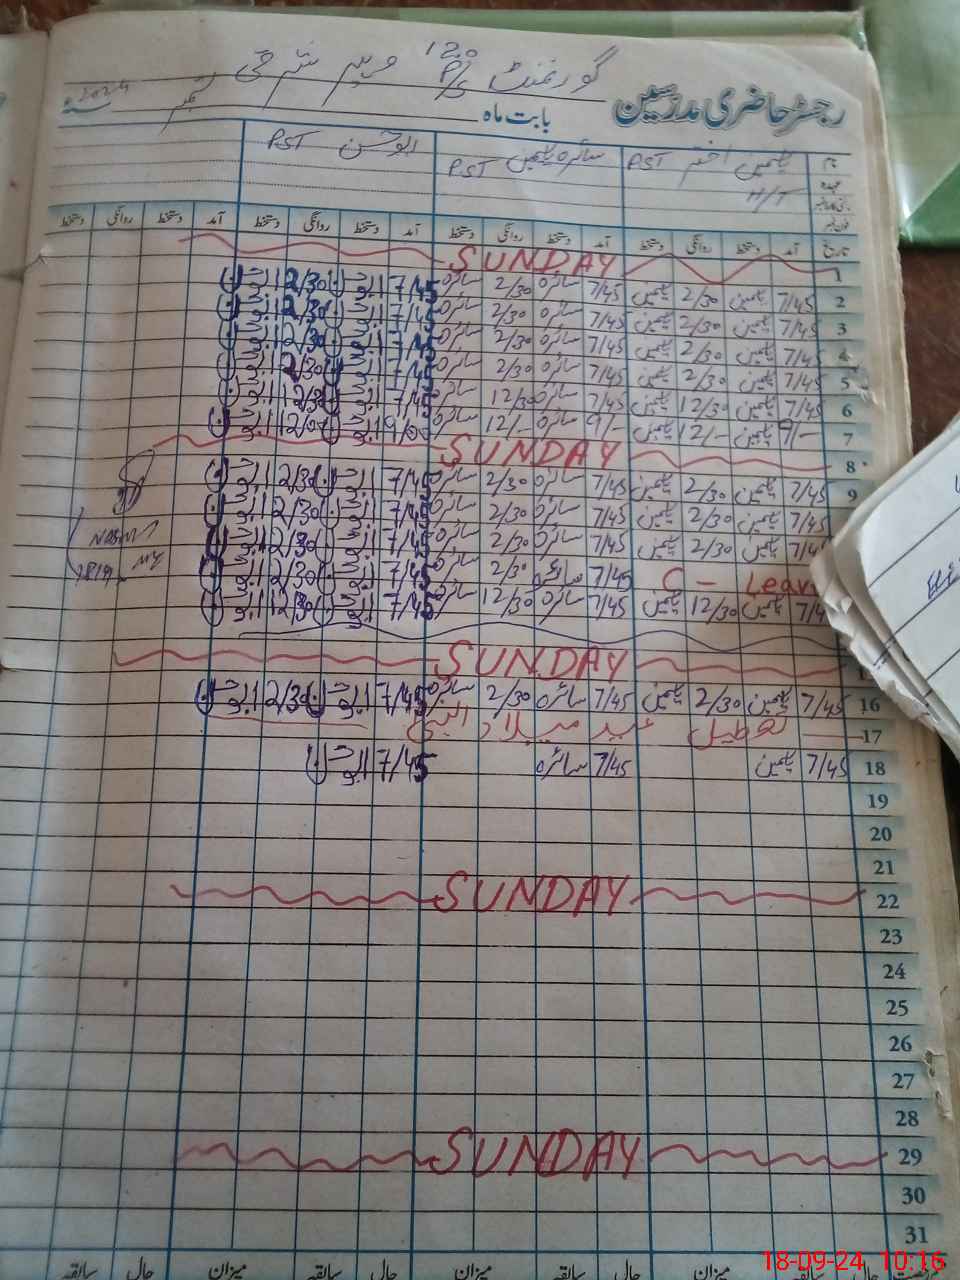 گورنمنٹ P/S 120
رجسٹر حاضری مدرسین بابت ماہ ستمبر 2024
نام یاسمین اختر PST سائرہ یاسمین PST ابوالحسن PST
عہدہ H/T
تاریخ آمد دستخط روانگی دستخط آمد دستخط روانگی دستخط آمد دستخط روانگی دستخط آمد دستخط روانگی دستخط
1 SUNDAY
2 7/45 یاسمین 2/30 یاسمین 7/45 سائرہ 2/30 سائرہ 7/45 ابوالحسن 2/30 ابوالحسن
3 7/45 یاسمین 2/30 یاسمین 7/45 سائرہ 2/30 سائرہ 7/45 ابوالحسن 2/30 ابوالحسن
4 7/45 یاسمین 2/30 یاسمین 7/45 سائرہ 2/30 سائرہ 7/45 ابوالحسن 2/30 ابوالحسن
5 7/45 یاسمین 2/30 یاسمین 7/45 سائرہ 2/30 سائرہ 7/45 ابوالحسن 2/30 ابوالحسن
6 7/45 یاسمین 12/30 یاسمین 7/45 سائرہ 12/30 سائرہ 7/45 ابوالحسن ابوالحسن
7 9/- یاسمین 12/- یاسمین 9/- سائرہ 12/- سائرہ 9/00 ابوالحسن 12/00 ابوالحسن
8 SUNDAY
9 7/45 یاسمین 2/30 یاسمین 7/45 سائرہ 2/30 سائرہ 7/45 ابوالحسن 2/30 ابوالحسن
7/45 یاسمین 2/30 یاسمین 7/45 سائرہ 2/30 سائرہ 7/45 ابوالحسن 2/30 ابوالحسن
7/45 یاسمین 2/30 یاسمین 7/45 سائرہ 2/30 سائرہ 7/45 ابوالحسن 2/30 ابوالحسن
C - Leave 7/45 سائرہ 2/30 سائرہ 7/45 ابوالحسن 2/30 ابوالحسن
7/45 یاسمین 12/30 یاسمین 7/45 سائرہ 12/30 سائرہ 7/45 ابوالحسن 12/30 ابوالحسن
SUNDAY
16 7/45 یاسمین 2/30 یاسمین 7/45 سائرہ 2/30 سائرہ 7/45 ابوالحسن 2/30 ابوالحسن
17 تعطیل عید میلاد النبی
18 7/45 یاسمین 7/45 سائرہ 7/45 ابوالحسن
19
20
21
22 SUNDAY
23
24
25
26
27
28
29 SUNDAY
30
31
حال سابقہ میزان حال سابقہ میزان حال سابقہ میزان حال سابقہ
18-09-24 10:16